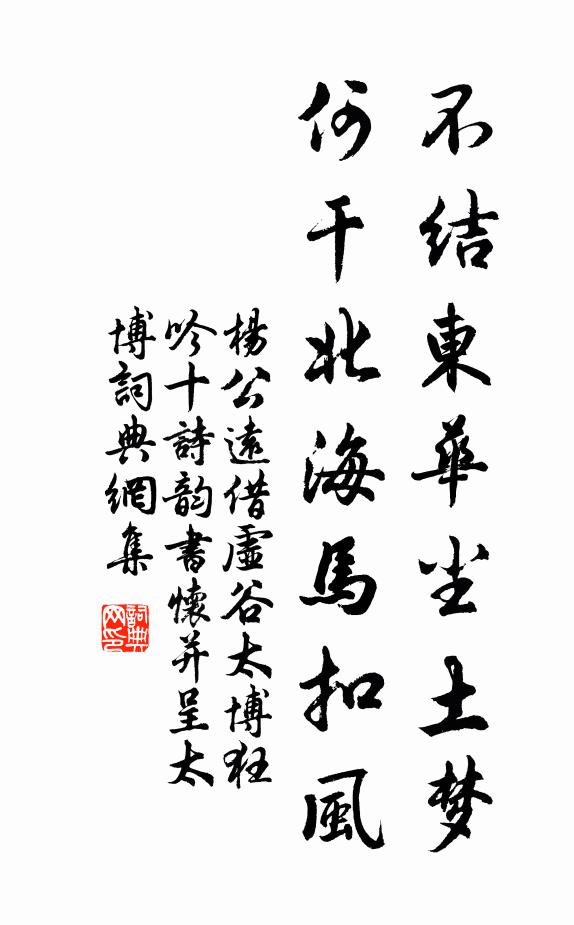 不结東華尘土梦
何干北海馬扣風
楊公遠借虛谷太博狂
吟十詩韵書懷并呈太
博詞典網集
詞典
网印